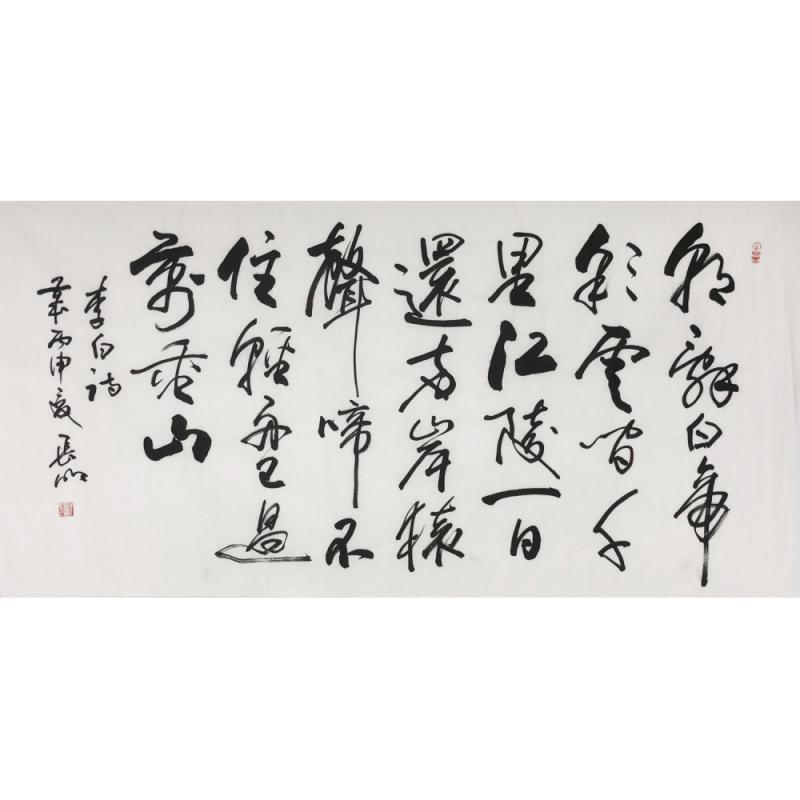 朝辭白帝
彩雲間千
里江陵一日
還兩岸猿
聲啼不
住輕舟已過
萬重山
李白詩
歲丙申夏長